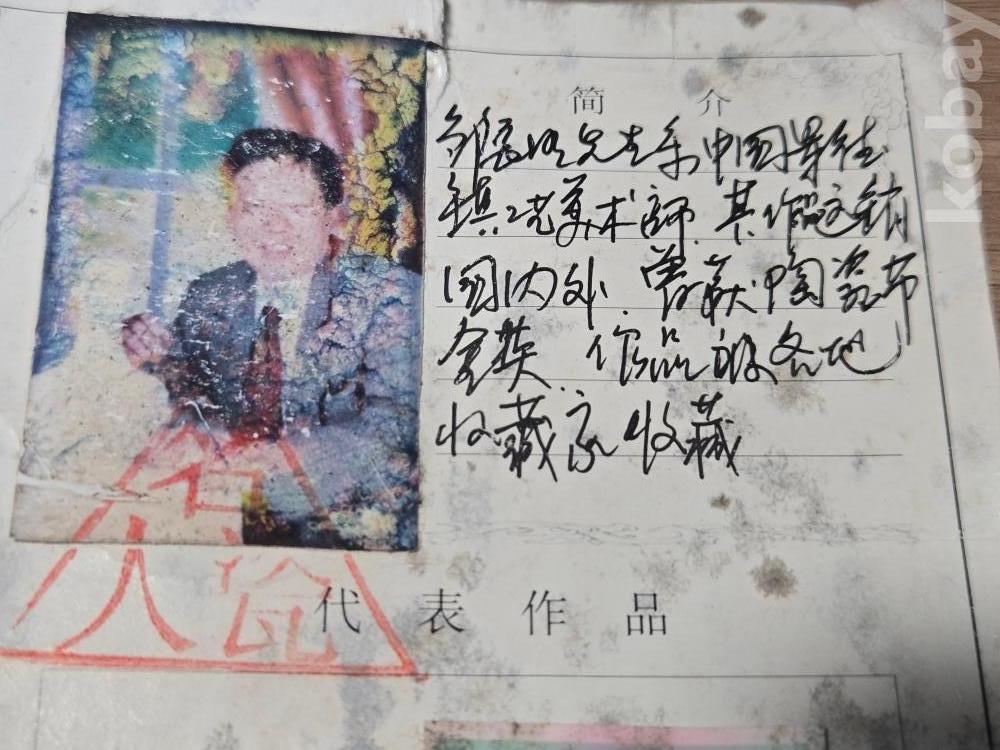 简 介
邹 先生系中国景德
镇工艺美术师.其作品远销
国内外.曾获陶瓷节
金奖.作品被各地
收藏家收藏
人 瓷
代 表 作 品
kobay